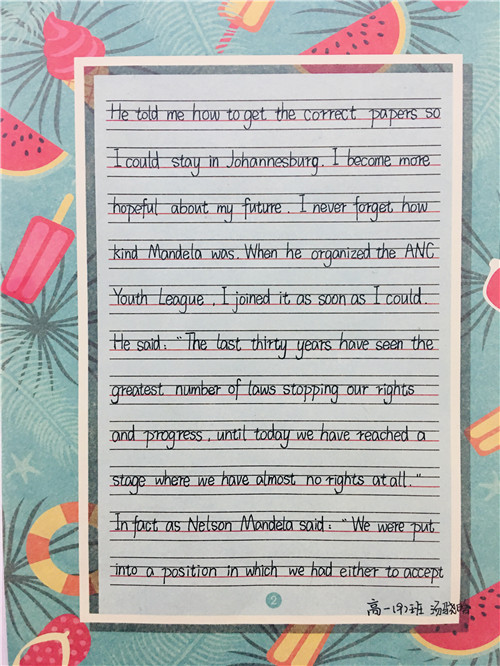 He told me how to get the correct papers so
I could stay in Johannesburg. I become more
hopeful about my future. I never forget how
kind Mandela was. When he organized the ANC
Youth League, I joined it as soon as I could.
He said: "The last thirty years have seen the
greatest number of laws stopping our rights
and progress, until today we have reached a
stage where we have almost no rights at all."
In fact as Nelson Mandela said: "We were put
into a position in which we had either to accept
2
高一(9)班 汤晓